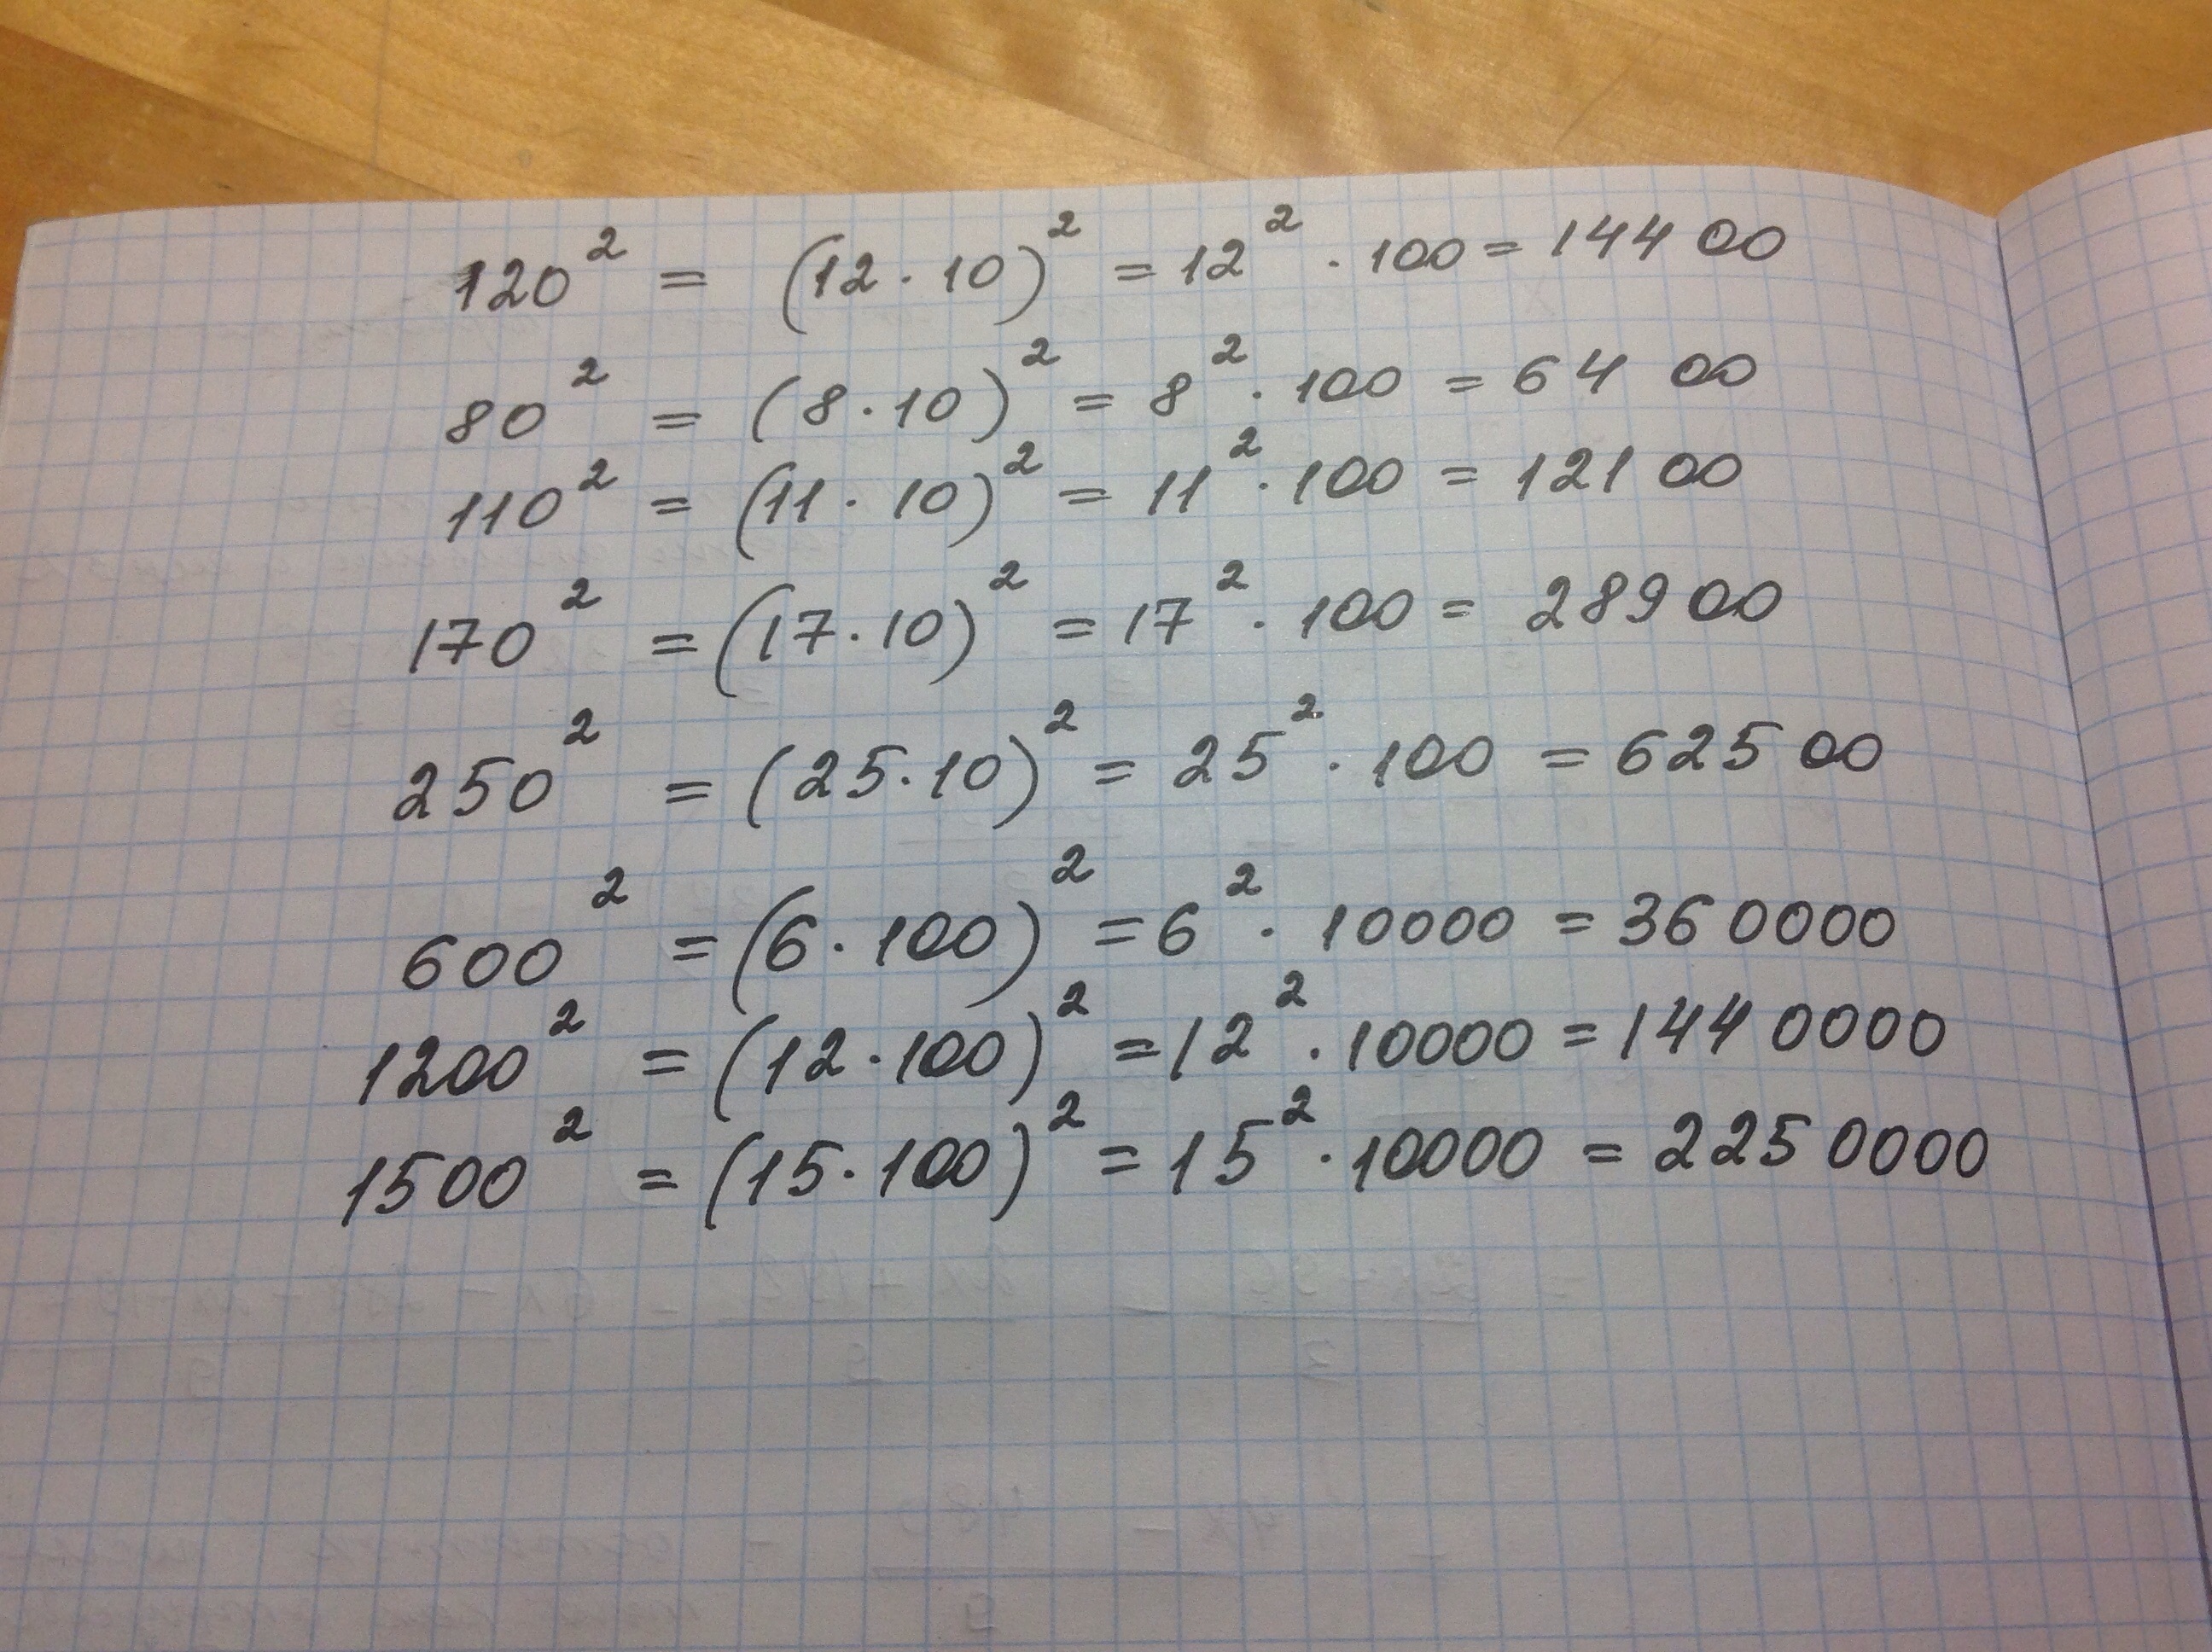 120² = (12 · 10)² = 12² · 100 = 144 00
80² = (8 · 10)² = 8² · 100 = 64 00
110² = (11 · 10)² = 11² · 100 = 121 00
170² = (17 · 10)² = 17² · 100 = 289 00
250² = (25 · 10)² = 25² · 100 = 625 00
600² = (6 · 100)² = 6² · 10000 = 36 0000
1200² = (12 · 100)² = 12² · 10000 = 144 0000
1500² = (15 · 100)² = 15² · 10000 = 225 0000